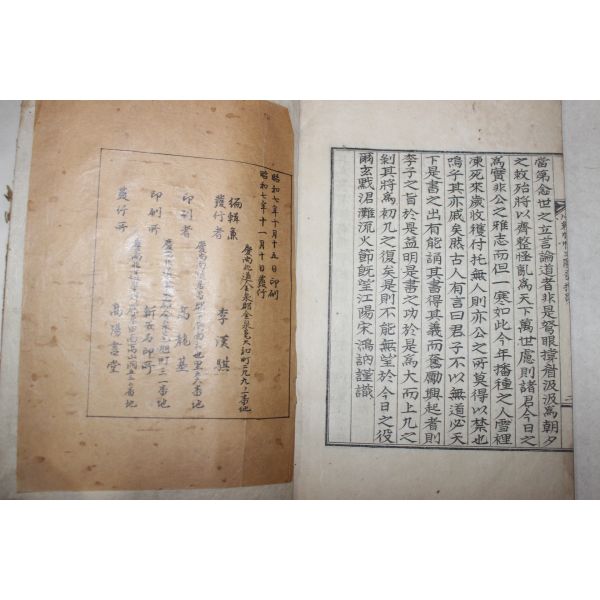 當第念世之立言論道者非是弩眼撐髥汲汲爲朝夕
之救殆將以齊整怪亂爲天下萬世慮則諸君今日之
爲實非公之雅志而但一寒如此今年播種之人雪裡
凍死來歲收獲付托無人則亦公之所莫得以禁也
嗚乎其亦戚矣然古人有言曰君子不以無道必天
下是書之出有能誦其書得其義而奮勵興起者則
李子之旨於是益明是書之功於是爲大而上九之
剝其將爲初九之復矣是則不能無望於今日之役
爾玄戰涒灘流火節旣望江陽宋鴻訥謹識
昭和七年十月十五日印刷
昭和七年十一月十日發行
慶尙北道金泉郡金泉邑大和町二九九ノ二番地
編輯兼
發行者 李漢騏
印刷者 高龍基
印刷所
發行所 高陽書堂